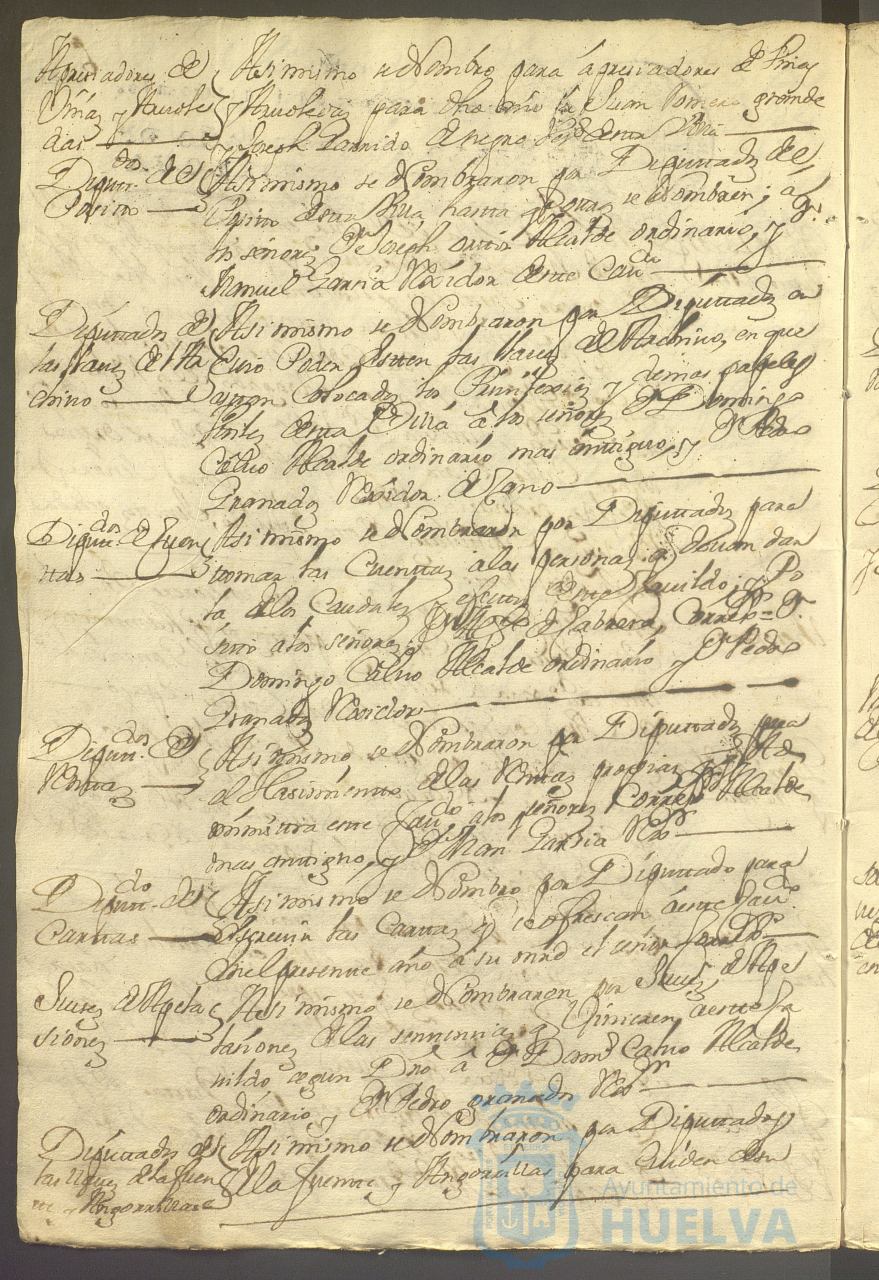 Apresiadores de
Viñas y Arvole
das
Asimismo se Nombro para apresiadores de Viñas
y Arvoledas para dho año a Juan Romero grande
y Joseph Garrido de negro vos. desta Villa
Diputdos. del
Posito
Asimismo se Nombraron por Diputados del
Posito desta Villa, hasta q. otros se Nombren; a
los señores Dn. Joseph ortis Alcalde ordinario, y Dn.
Manuel Garcia Rexidor deste Cavdo.
Diputados de
las llaves del Ar
chivo
Asimismo se Nombraron por Diputados en
Cuio Poder esten las llaves del Archivo, en que
estan Colocados los Privilexios y demas papeles
utiles desta Villa a los señores Dn. Domingo
Calvo Alcalde ordinario mas antiguo, y Dn. Pedro
Granados Rexidor decano
Diputdos. de Quen
tas
Asimismo se Nombraron por Diputados para
tomar las Cuentas a las personas q. devan dar
la de los Caudales efectos deste Cavildo, y Po
sito a los señores de Cabrera, Correxor. = Dn.
Domingo Calvo Alcalde ordinario y Dn. Pedro
Granados Rexidor
Diputdos. de
Rentas
Asimismo se Nombraron por Diputados para
el Hasimiento de las Rentas propias q. Ad
ministra este Cavdo. a los señores Correxor. Alcalde
mas antiguo, y Dn. Man. Garcia Rexor.
Diputdo. de
Cartas
Asimismo se Nombro por Diputado para
Escrevir las Cartas q. se ofrescan a este Cavdo.
en el presente año a su mrd el señor Correxor.
Jueses de Apela
siones
Asimismo se Nombraron por Jueses de Ape
lasiones de las sentencias q. vinieren a este Ca
vildo segun Dro a Dn. Domo. Calvo Alcalde
ordinario, y Dn. Pedro granados Rexor.
Diputados de
las llaves de la fuen
te y Angorrillas
Asimismo se Nombraron por Diputados
de la fuente y Angorrillas para Cuiden de su
Ayuntamiento de
HUELVA